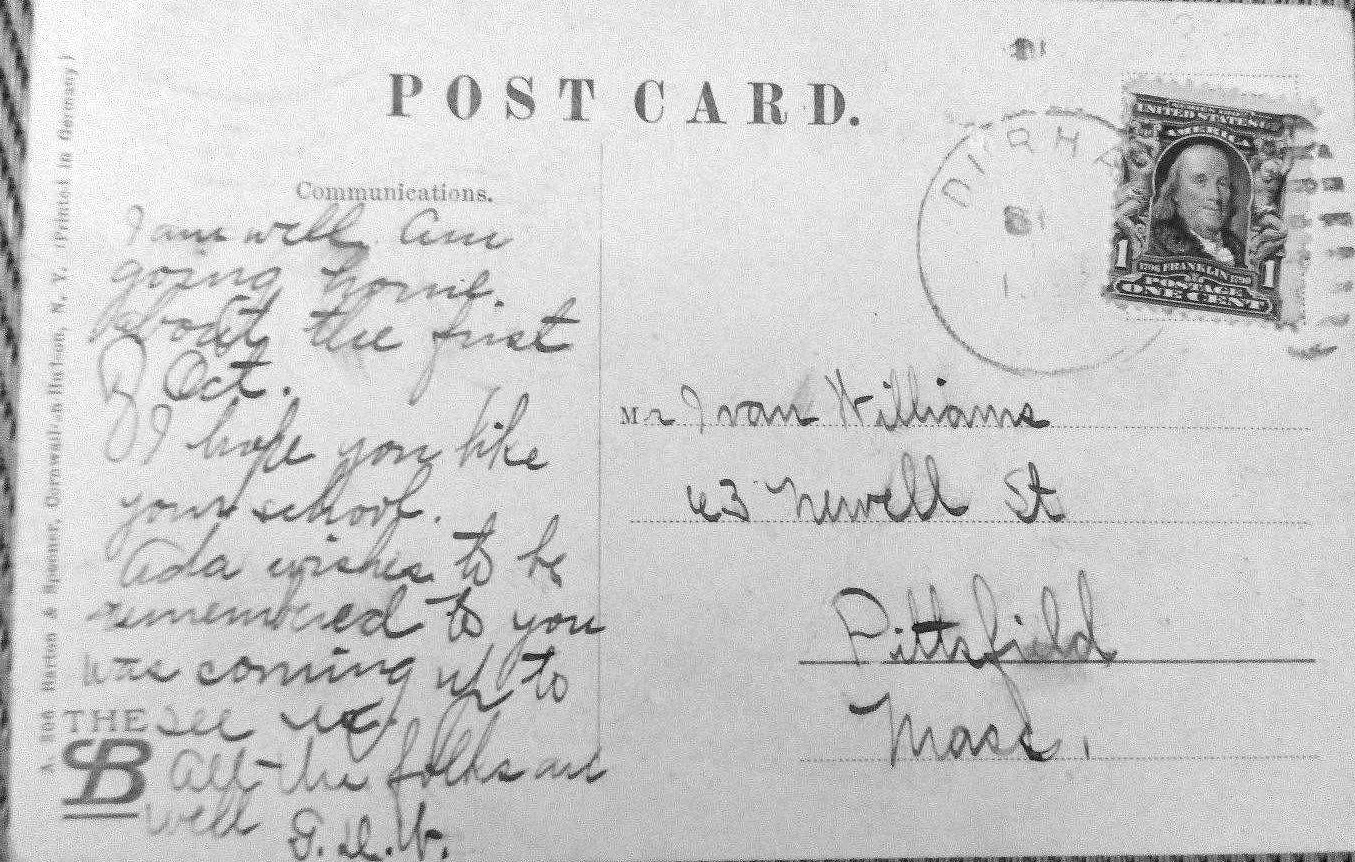 POST CARD.
Communications.
I am well. Am
going home.
about the first
of Oct.
I hope you like
your school.
Ada wishes to be
remembered to you
was coming up to
see us
All the folks are
well
Mr Ivan Williams
63 Newell St
Pittsfield
Mass.
DURHA
UNITED STATES
AMERICA
1 FRANKLIN 1
POSTAGE
ONE CENT
THE
CB
(Printed in Germany)